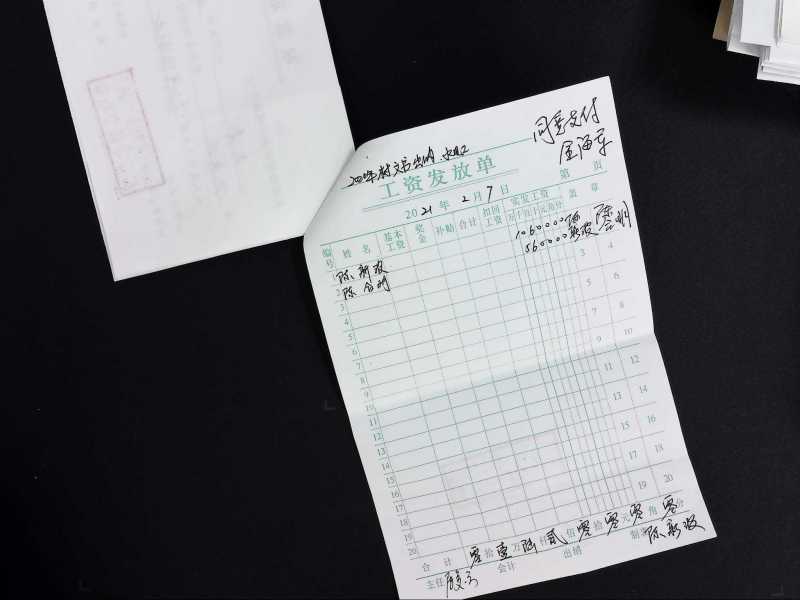 同意支付
2020年村文书出纳
工资发放单
2021年2月7日 第 页
编号 姓名 基本工资 奖金 补贴 合计 扣回工资 实发工资 万千百十元角分 盖章
1 陈新波 1060000
2 陈 560000
3 3 4
4
5 5 6
6
7 7 8
8
9 9 10
10
11 11 12
12
13 13 14
14
15 15 16
16
17 17 18
18
19 19 20
20
合计 零拾壹万陆仟贰佰零拾零元零角零分
主任 会计 出纳 制表 陈新波